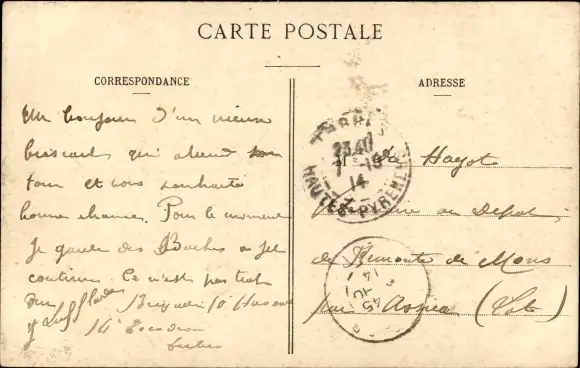 CARTE POSTALE
CORRESPONDANCE
Un bonjour d'un vieux
qui attend son
tour et vous souhaite
bonne chance. Pour le moment
Je garde des Boches a jet
continu. Ce n'est pas trop
dur
Brigadier 10 Hussards
14 Escadron
Tarbes
ADRESSE
TARBES
23 40
7 - 10
14
HAUTES PYRENEES
Hayot
au Depot
de Remonte de Mons
par (Lot)